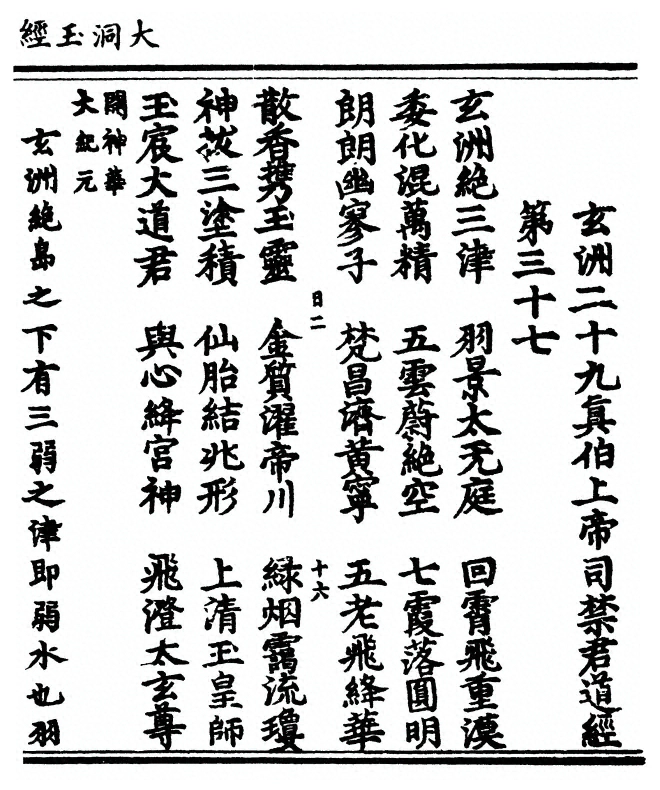 大洞玉經
玄洲二十九真伯上帝司禁君道經
第三十七
玄洲絶三津　羽景太无庭　回霄飛重漠
委化混萬精　五雲蔚絶空　七霞落圓明
朗朗幽寥子　梵昌濟黄寧　五老飛絳華
日二　十六
散香携玉靈　金質濯帝川　緑烟靄流瓊
神茇三塗積　仙胎結兆形　上清玉皇師
玉宸大道君　與心絳宮神　飛澄太玄尊
開神華
大紀元
玄洲絶島之下有三弱之津即弱水也羽